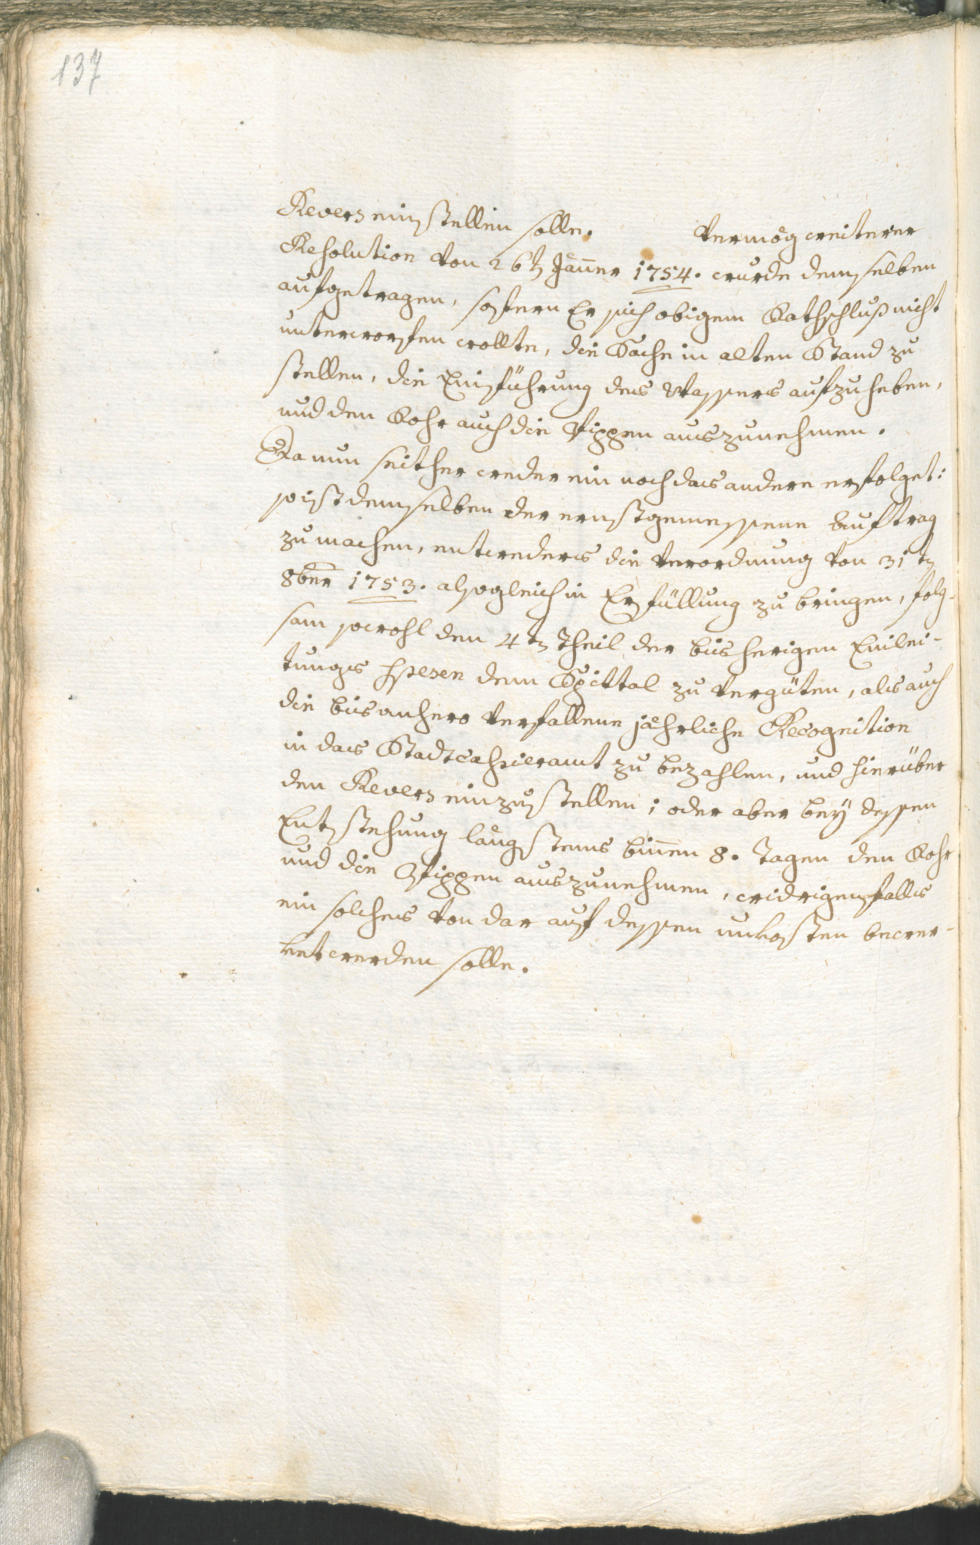 137
Revers einstellen solle. Vermög weiterer
Resolution von 26t Jäner 1754. wurde demselben
aufgetragen, sofern Er sich obigem Rathschluß nicht
unterworfen wollte, die Sache in alten Stand zu
stellen, die Einführung des Wassers aufzuheben,
und den Rohr auch die Pippen auszunehmen.
Da nun seither weder ein noch das andere erfolget:
so ist demselben der ernstgemessene Auftrag
zu machen, entweders die Verordnung von 31t
8ber 1753. alsogleich in Erfüllung zu bringen, folg-
sam sowohl den 4t Theil der bisherigen Einlei-
tungs spesen dem Spittal zu vergüten, als auch
die bis anhero verfallene jährliche Recognition
in das Stadtcassieramt zu bezahlen, und hierüber
den Revers einzustellen; oder aber beÿ dessen
Entstehung längstens binen 8. Tagen den Rohr
und die Pippen auszunehmen, widrigenfalls
ein solches von dar auf dessen unkosten bewer-
ket werden solle.